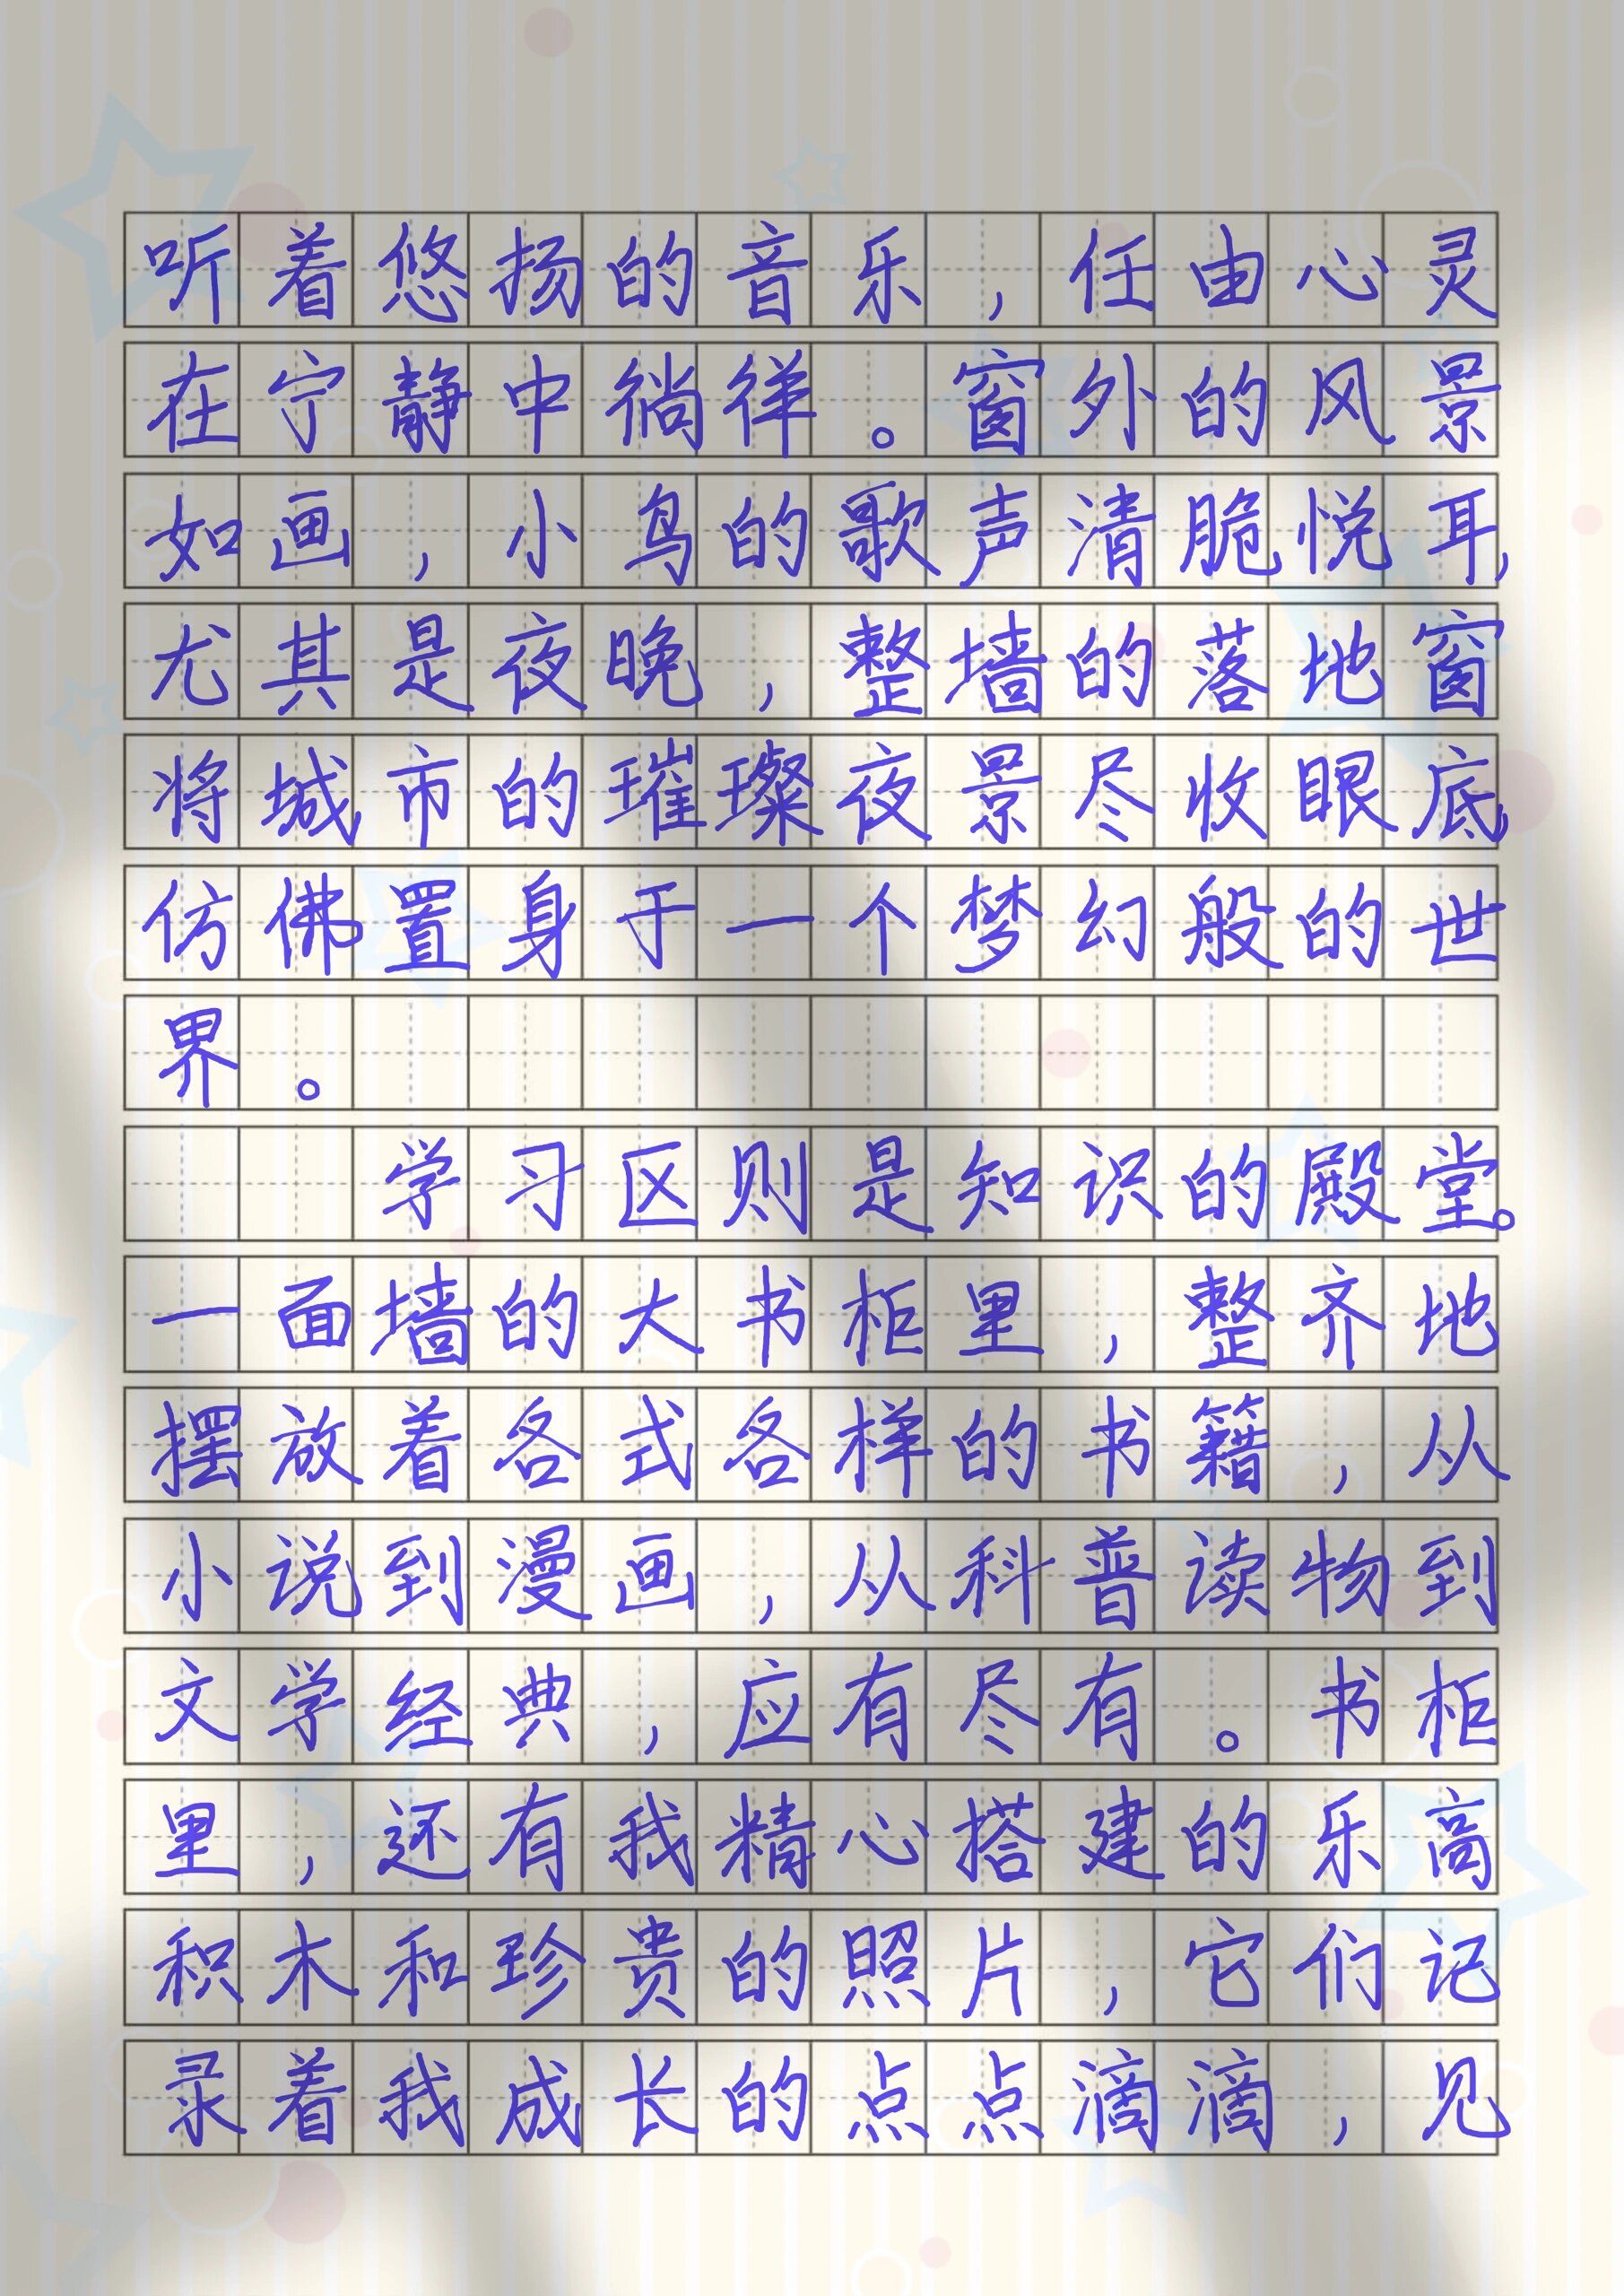 听着悠扬的音乐，任由心灵
在宁静中徜徉。窗外的风景
如画，小鸟的歌声清脆悦耳，
尤其是夜晚，整墙的落地窗
将城市的璀璨夜景尽收眼底，
仿佛置身于一个梦幻般的世
界。
学习区则是知识的殿堂。
一面墙的大书柜里，整齐地
摆放着各式各样的书籍，从
小说到漫画，从科普读物到
文学经典，应有尽有。书柜
里，还有我精心搭建的乐高
积木和珍贵的照片，它们记
录着我成长的点点滴滴，见